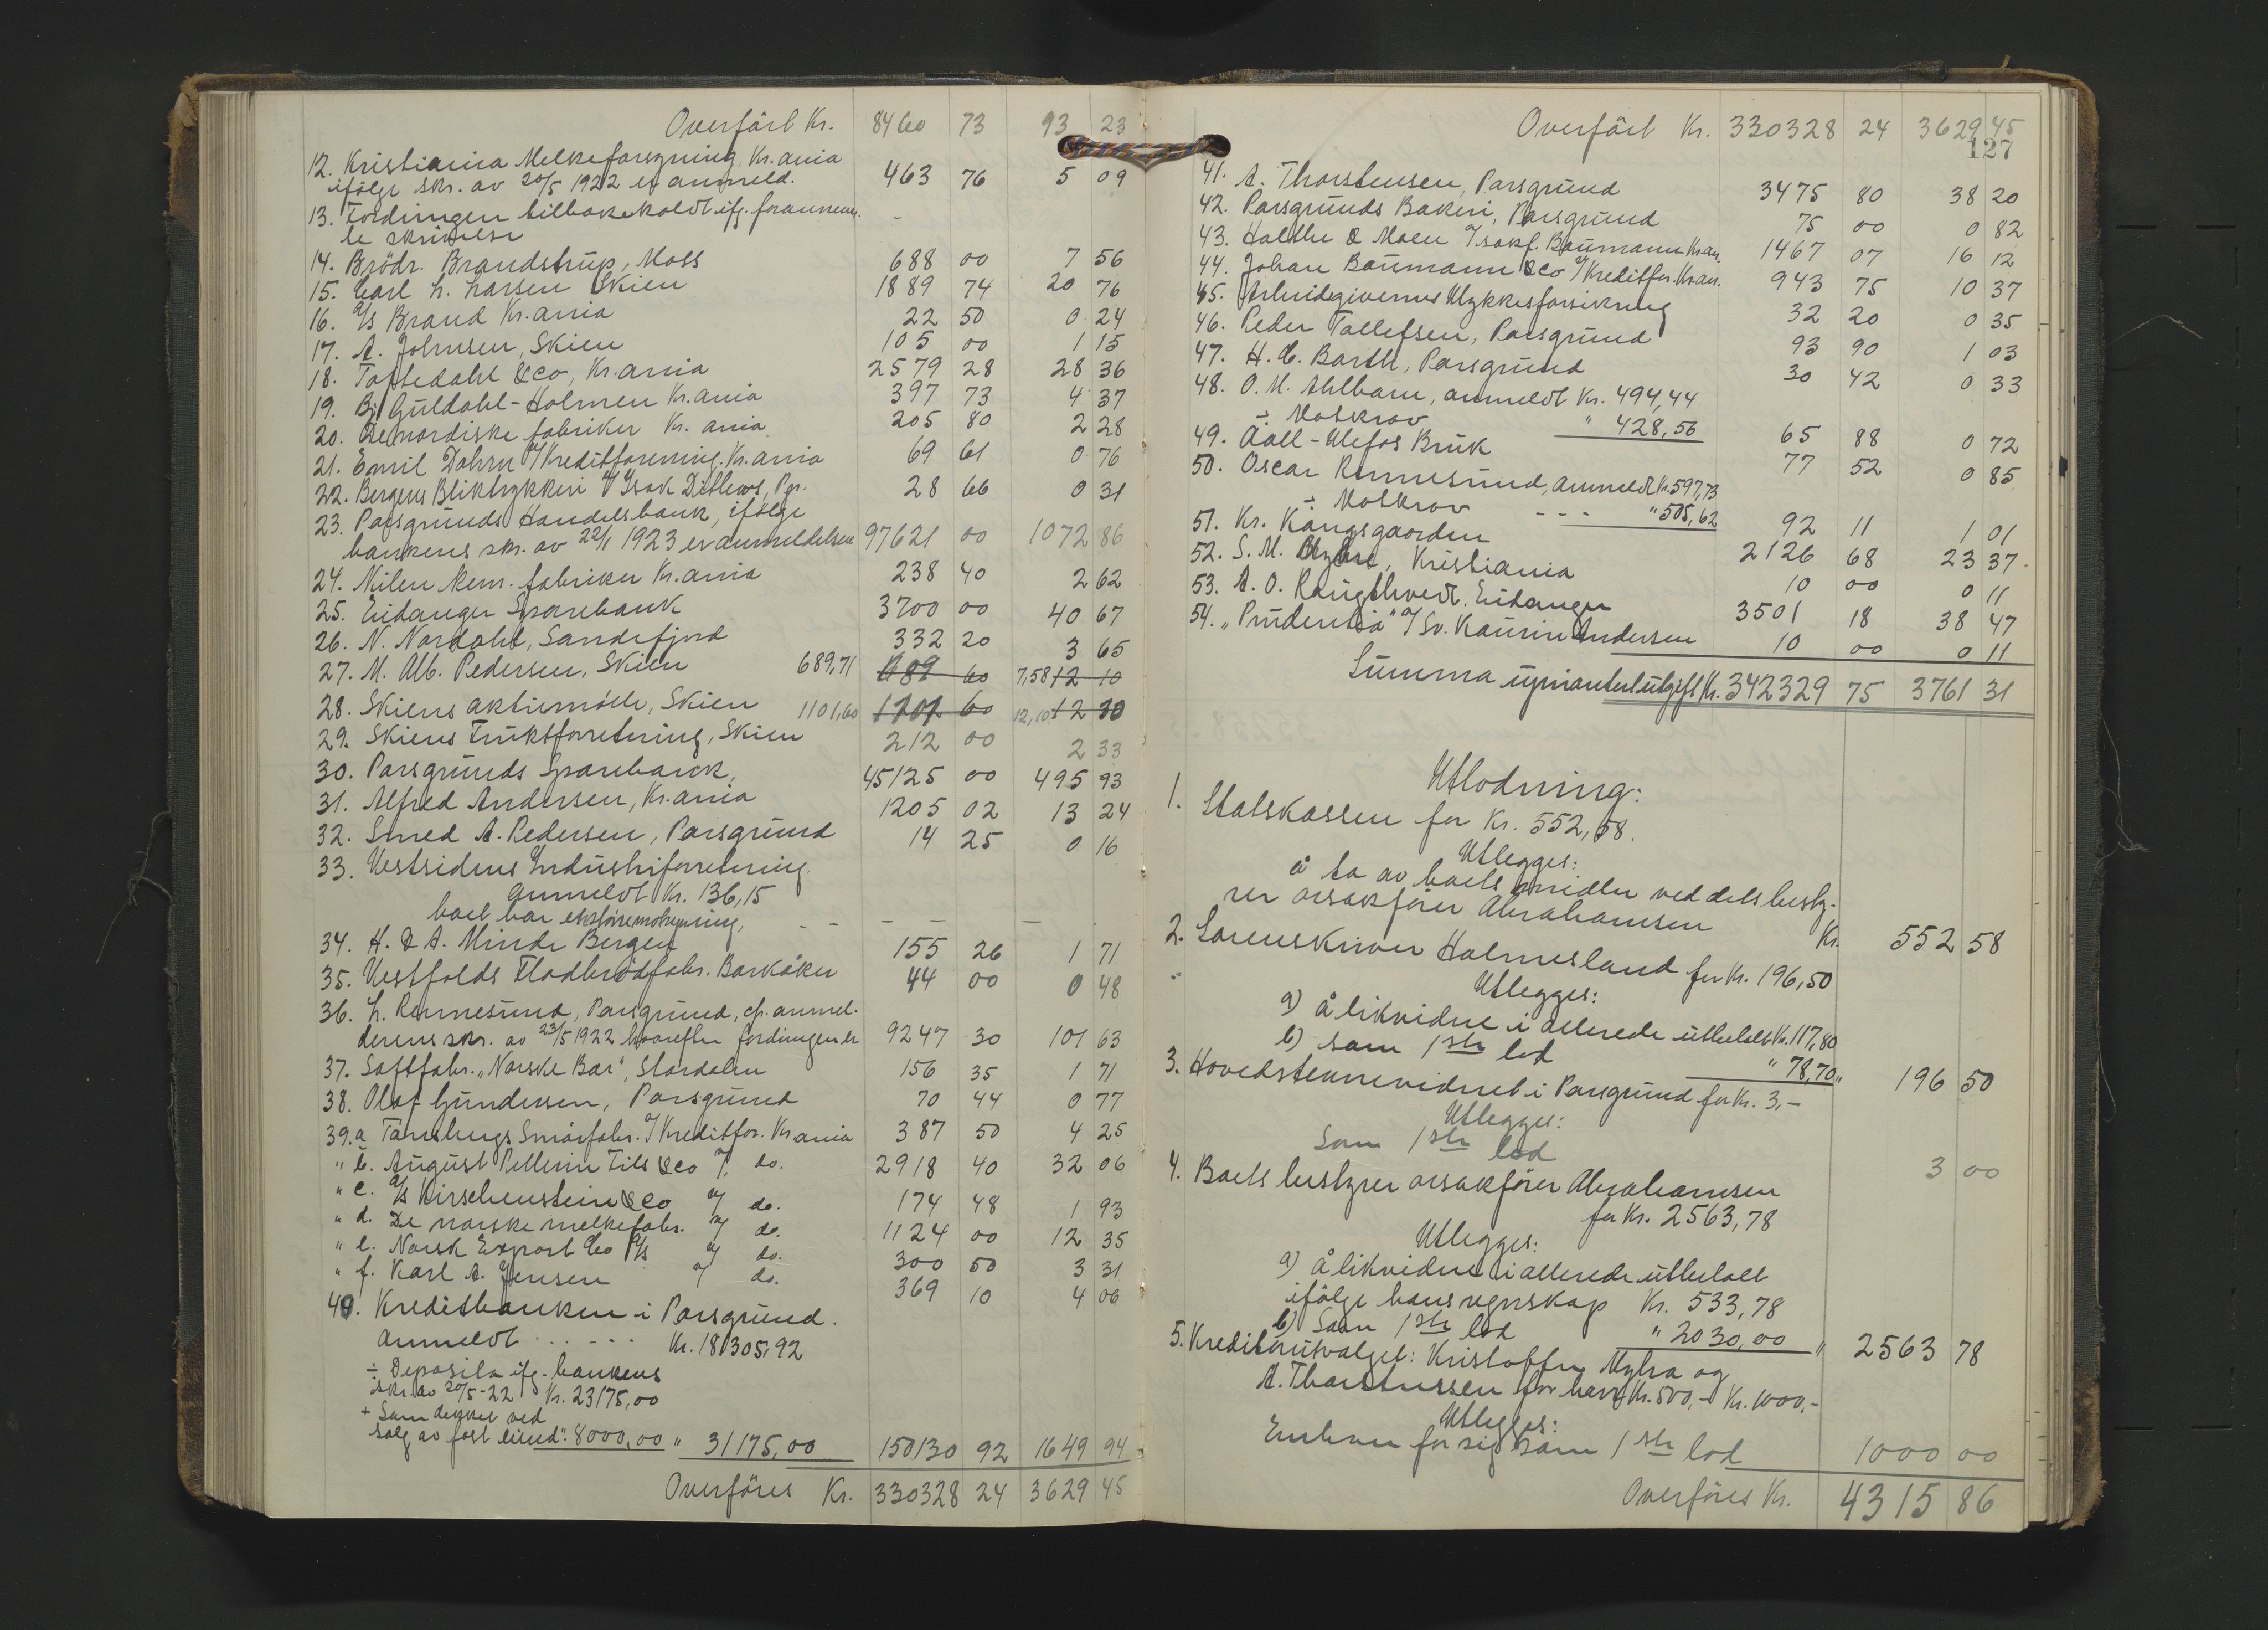 Overført Kr. 8460 73 93 23
12. Kristiania Melkeforsyning Kr.ania
ifølge skr. av 20/5 1922 er anmeld. 463 76 5 09
13. Fordringen tilbakekaldt ifg. forannevn.
te skrivelse -
14. Brödr. Brandstrup, Moss 688 00 7 56
15. Carl L. Larsen Skien 1889 74 20 76
16. A/s Brand Kr.ania 22 50 0 24
17. A. Johnsen, Skien 105 00 1 15
18. Taftedahl & Co, Kr.ania 2579 28 28 36
19. Bj. Guldahl-Holmen Kr.ania 397 73 4 37
20. De nordiske fabriker Kr. ania 205 80 2 28
21. Emil Dahm v/ Kreditforening. Kr.ania 69 61 0 76
22. Bergens Bliktrykkeri v/ Isak Ditlews, Pgr. 28 66 0 31
23. Porsgrunds Handelsbank, ifølge
bankens skr. av 22/1 1923 er anmeldelsen 97621 00 1072 86
24. Nilen kem. fabriker Kr.ania 238 40 2 62
25. Eidanger Sparebank 3700 00 40 67
26. N. Nordahl, Sandefjord 332 20 3 65
27. M. Alb. Pedersen, Skien 689,71 689 60 7,58 12 10
28. Skiens aktiemölle, Skien 1101,60 1101 60 12,10 12 10
29. Skiens Fruktforretning, Skien 212 00 2 33
30. Porsgrunds Sparebank, 45125 00 495 93
31. Alfred Andersen, Kr.ania 1205 02 13 24
32. Smed A. Pedersen, Porsgrund 14 25 0 16
33. Vestsidens Industriforretning
anmeldt Kr. 136,15
boet har större motregning, - - - - -
34. H. & A. Minde Bergen 155 26 1 71
35. Vestfolds Fladbrödfabr. Barkåker 44 00 0 48
36. L. Rønnesund, Porsgrund, cfr. anmel-
derens skr. av 23/5 1922 hvorefter fordringen er 9247 30 101 63
37. Saftfabr. „Norske Bær", Stordalen 156 35 1 71
38. Olaf Gundersen, Porsgrund 70 44 0 77
39.a Tønsbergs Smörfabr. v/ Kreditfor. Kr.ania 387 50 4 25
" b. August Pellerin Fils & Co v/ do. 2918 40 32 06
" c. A/s Kirschenstein & Co v/ do. 174 48 1 93
" d. De norske melkefabr. v/ do. 1124 00 12 35
" e. Norsk Export Co A/s v/ do. 300 50 3 31
" f. Karl A. Jensen v/ do. 369 10 4 06
40. Kreditbanken i Porsgrund.
anmeldt - - - - - Kr. 181305,92
÷ Deposita ifg. bankens
skr. av 20/5-22 Kr. 23175,00
+ Som dekket ved
salg av fast eiend. " 8000,00 " 31175,00 150130 92 1649 94
Overföres Kr. 330328 24 3629 45
Overfört Kr. 330328 24 3629 45
127
41. A. Thorstensen, Porsgrund 3475 80 38 20
42. Porsgrunds Bakeri, Porsgrund 75 00 0 82
43. Holdhe & Moen v/ sakf. Baumann Kr.an. 1467 07 16 12
44. Johan Baumann & Co v/ Kreditfor. Kr.an. 943 75 10 37
45. Arbeidsgivernes Ulykkesforsikring 32 20 0 35
46. Peder Tollefsen, Porsgrund 93 90 1 03
47. H. C. Barth, Porsgrund 30 42 0 33
48. O. M. Ahlbom, anmeldt Kr. 494,44
÷ Motkrav " 428,56 65 88 0 72
49. Aall-Ulefos Bruk 77 52 0 85
50. Oscar Rønnesund, anmeldt Kr. 597,73
÷ Motkrav - - - " 505,62 92 11 1 01
51. Kr. Kongsgaarden 2126 68 23 37
52. S. M. Myhre, Kristiania 10 00 0 11
53. A. O. Raugthvedt, Eidanger 3501 18 38 47
54. „Prudentia" v/ Sv. Kaurin Andersen 10 00 0 11
Summa uprioritert utgift Kr. 342329 75 3761 31
Utlodning:
1. Statskassen for Kr. 552,58.
Utlegges:
å ta av boets midler ved dets besty-
rer o.r.sakförer Abrahamsen Kr. 552 58
2. Sorenskriver Holmesland for Kr. 196,50
Utlegges:
a) å likvidere i allerede utbetalt Kr. 117,80
b) som 1ste lod " 78,70 " 196 50
3. Hovedstevnevidnet i Porsgrund for Kr. 3,-
Utlegges:
Som 1ste lod 3 00
4. Boets bestyrer o.r.sakförer Abrahamsen
for Kr. 2563,78
Utlegges:
a) å likvidere i allerede utbetalt
ifölge hans regnskap Kr. 533,78
b) Som 1ste lod " 2030,00 " 2563 78
5. Kreditorutvalget: Kristoffer Myhra og
A. Thorstensen for hver Kr. 500,- Kr. 1000,-
Utlegges:
Enhver for sig som 1ste lod 1000 00
Overföres Kr. 4315 86